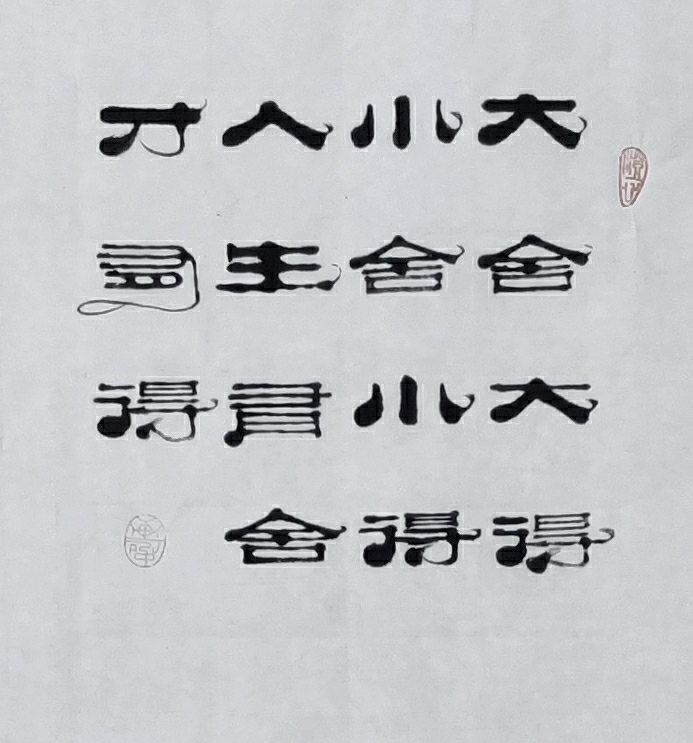 大舍大得
小舍小得
人生有舍
才得